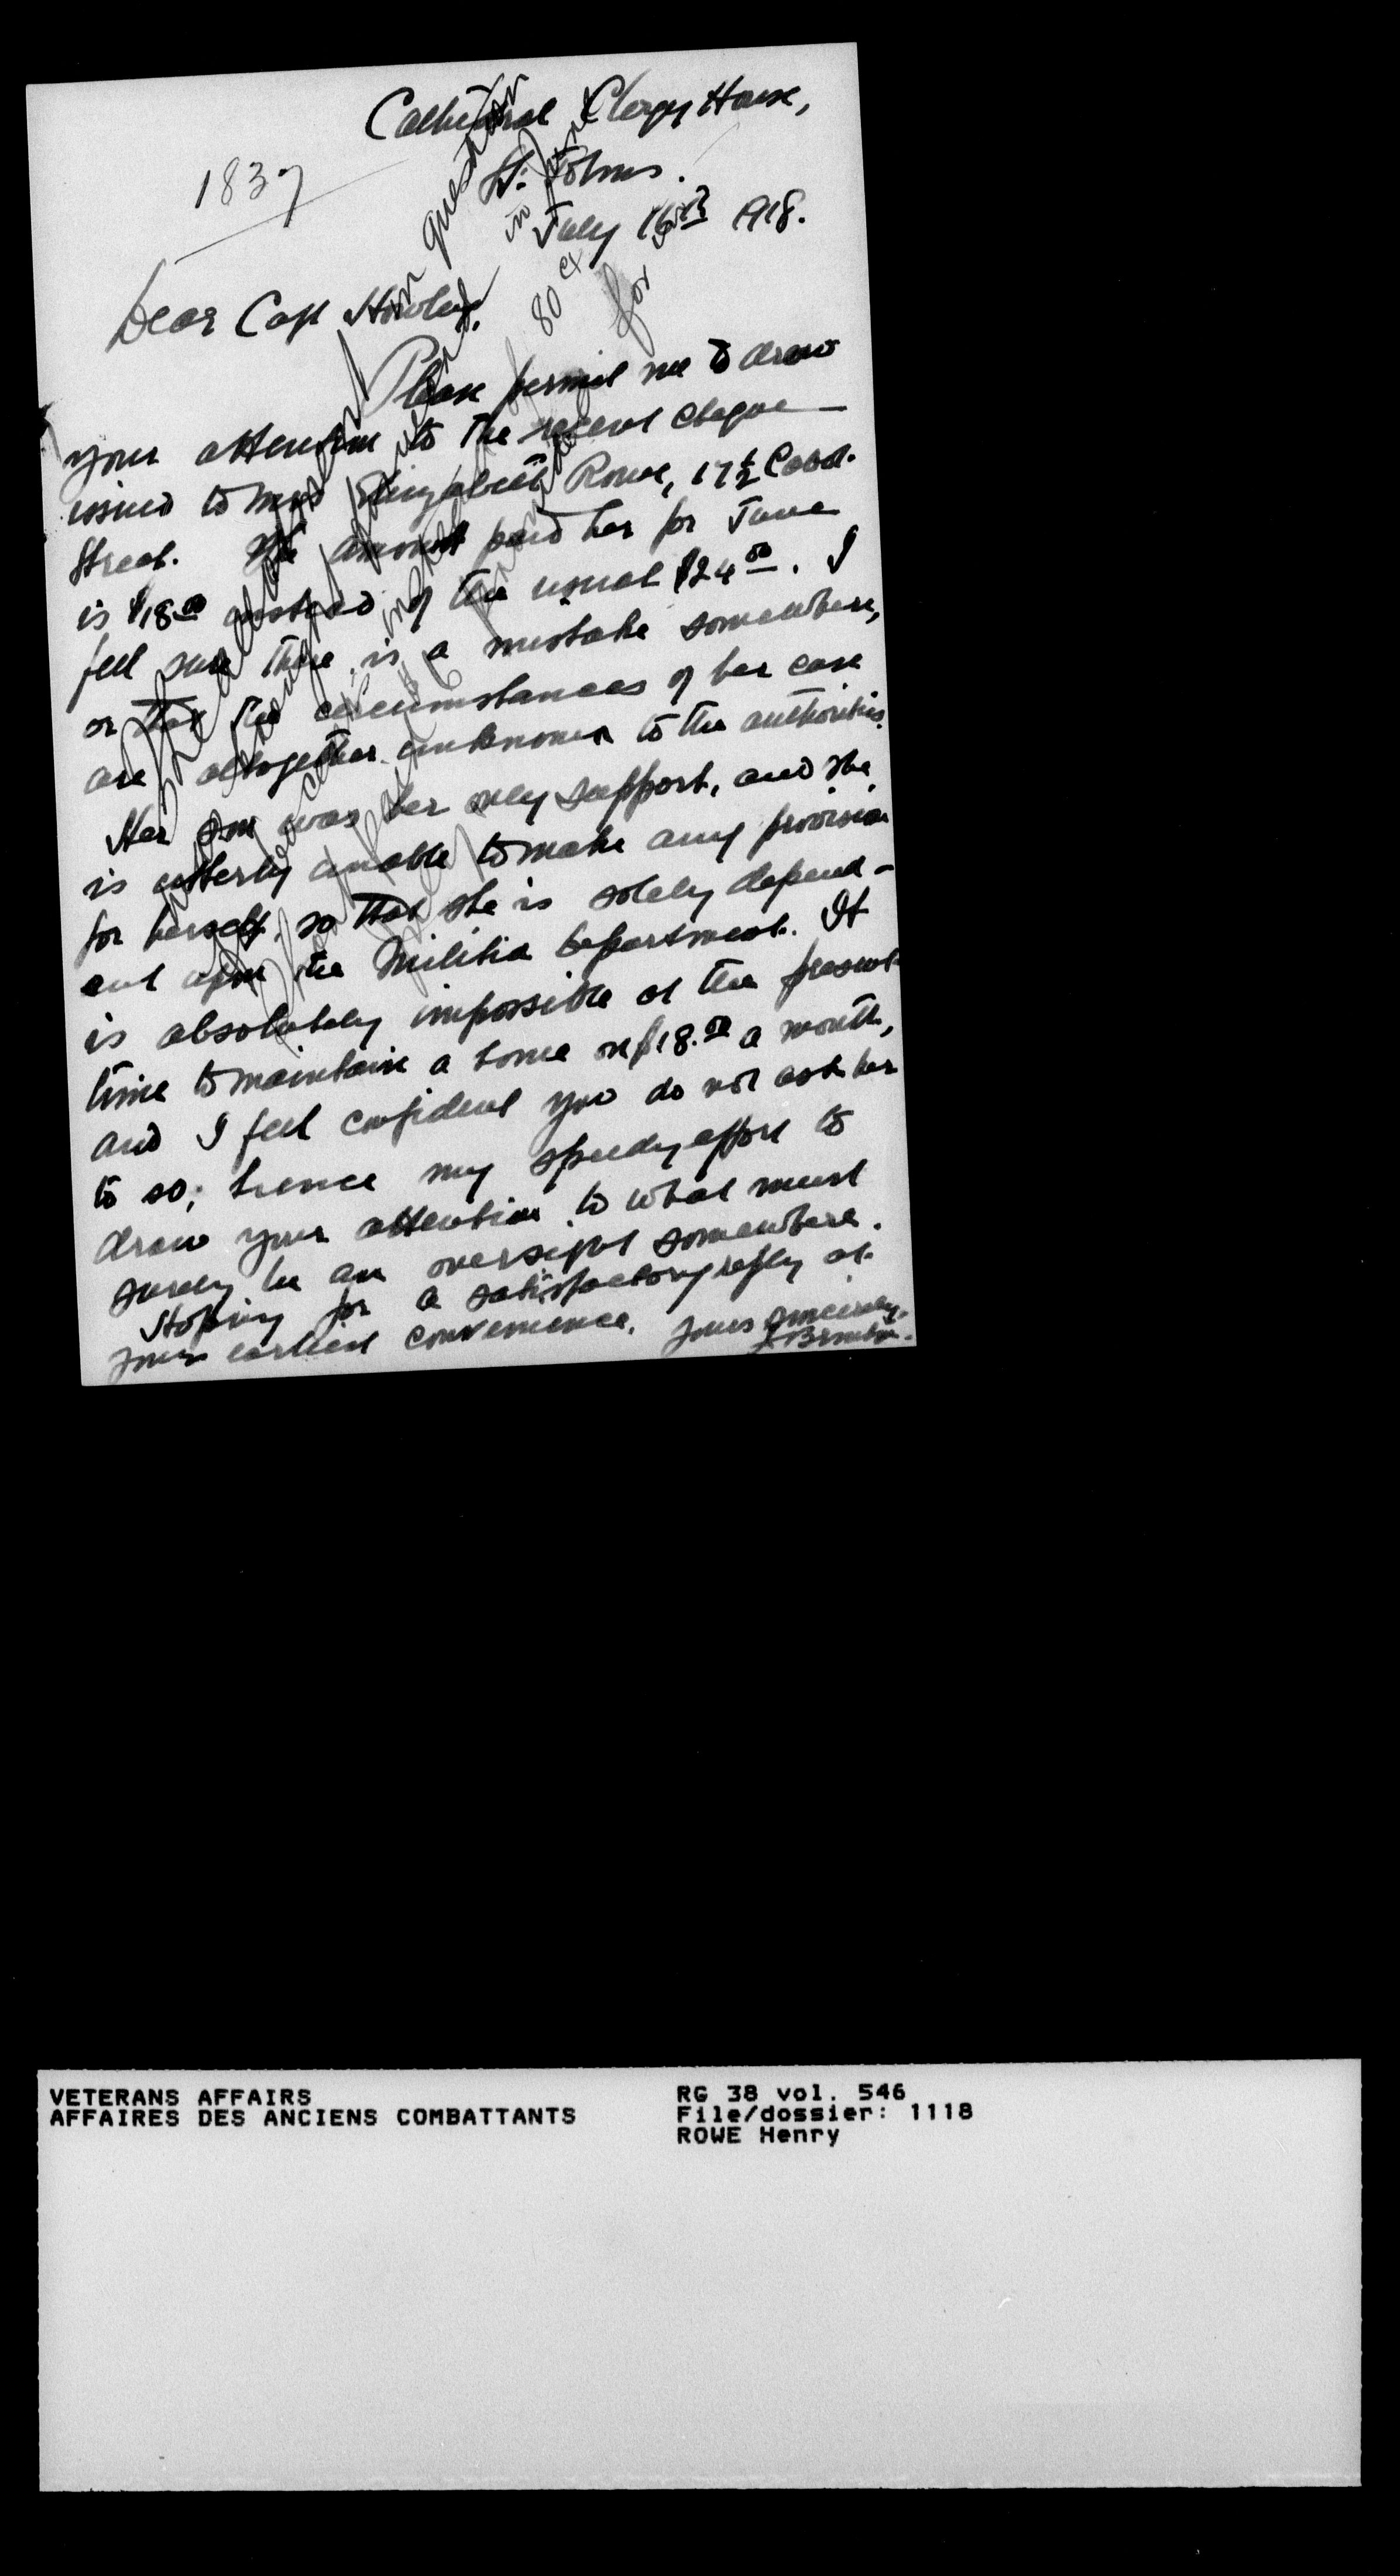 Cathedral Clergy House,
St. Johns.
1837
July 16th 1918.
Dear Capt Howley.
Please permit me to draw
your attention to the recent cheque
issued to Mrs Elizabeth Rowe, 17½ Cood.
Street. The amount paid her for June
is $18.00 instead of the usual $24.00. I
feel sure there is a mistake somewhere,
or that the circumstances of her case
are altogether unknown to the authorities.
Her son was her only support, and she
is utterly unable to make any provision
for herself, so that she is solely depend-
ent upon the Militia Department. It
is absolutely impossible at the present
time to maintain a home on $18.00 a month,
and I feel confident you do not ask her
to so; hence my speedy effort to
draw your attention to what must
surely be an oversight somewhere.
Hoping for a satisfactory reply at
your earliest convenience. Yours sincerely,
The allotment in question
80 c
for
VETERANS AFFAIRS
AFFAIRES DES ANCIENS COMBATTANTS
RG 38 vol. 546
File/dossier: 1118
ROWE Henry